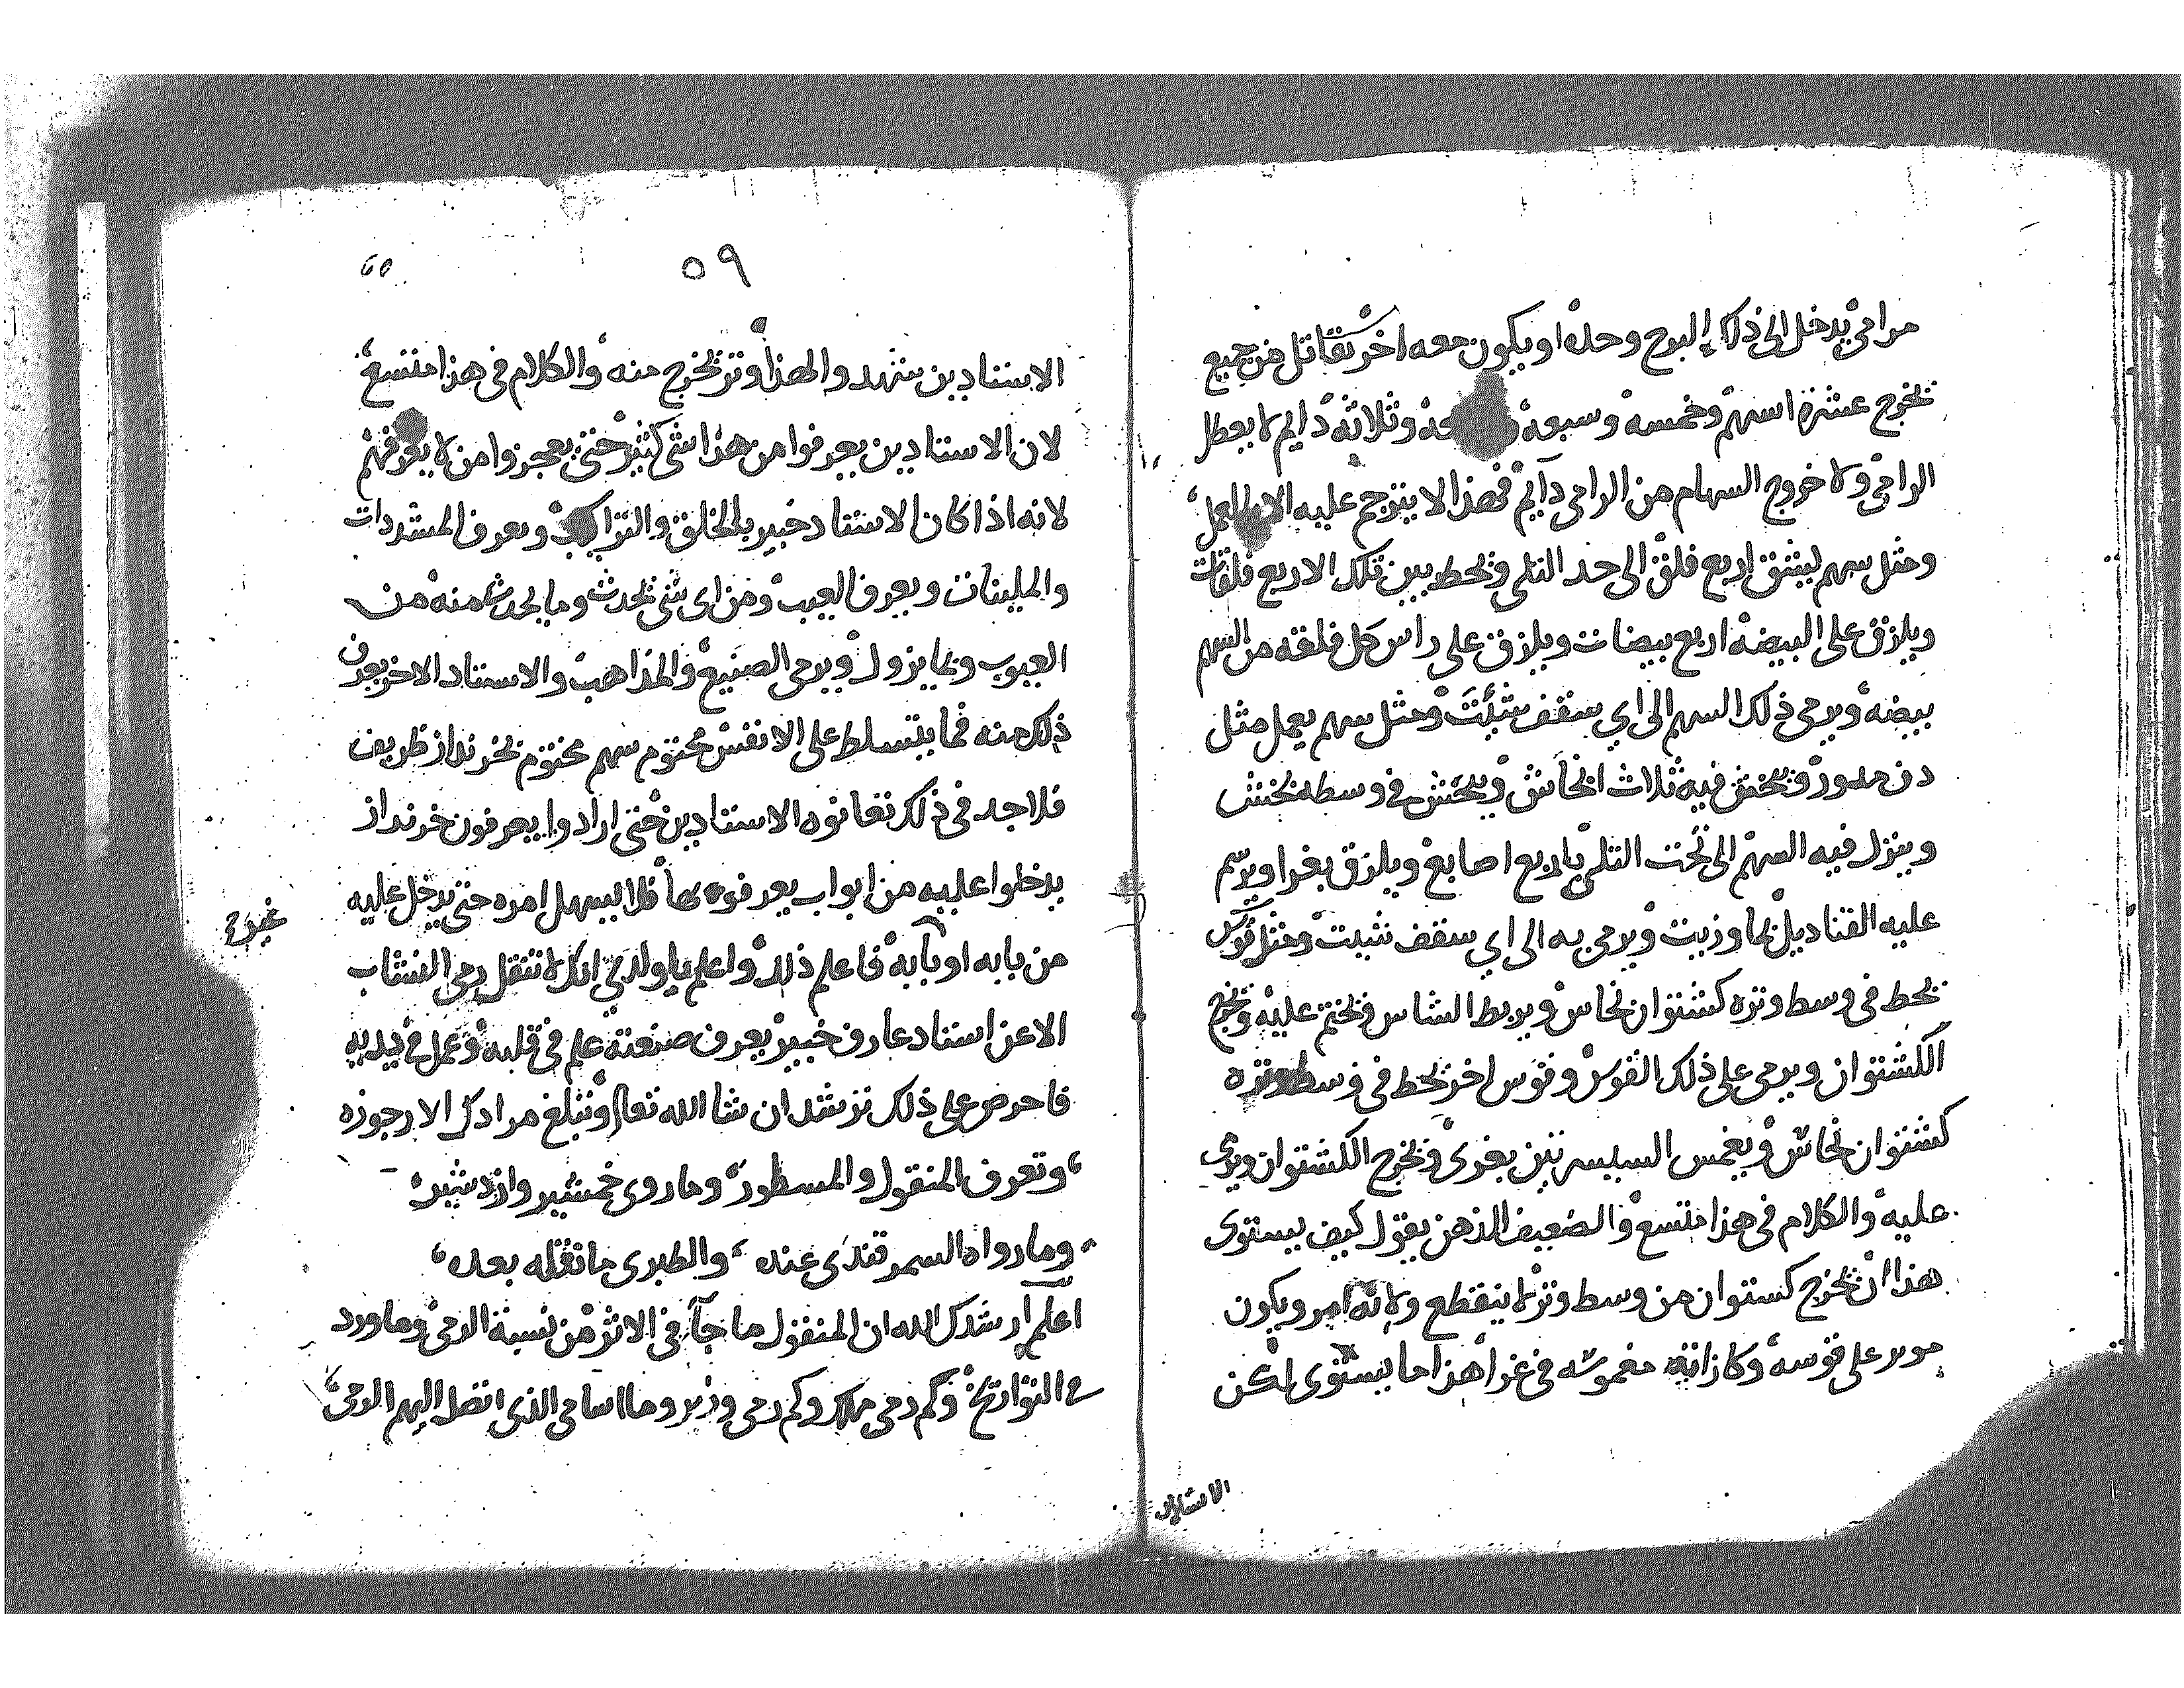 مرامي يدخل الى ذلك البرج وحده او يكون معه اخر تقاتل من جميع
تخرج عشرة اسهم وخمسه وسبعه وثلاثة دايم لا يعطل
الرامي ولا خروج السهام من الرامي دايم فهذا لا يترجم عليه الا بالعمل
ومثل سهم ليشق اربع فلق الى حد الثلي ويحط بين تلك الاربع فلقات
ويلزق على البيضة اربع بيضات ويلزق على راس كل فلقه من السهم
بيضه ويرمي ذلك السهم الى اي سقف شئت ومثل سهم يعمل مثل
دن مدور ويخش فيه ثلاث انخاش ويخش في وسطه بخش
وينزل فيه السهم الى تحت الثلي باربع اصابع ويلزق بغرا ويرسم
عليه القناديل بما وزيت ويرمى به الى اي سقف شيت ومثل قوس
يحط في وسط وتره كشتوان نحاس ويربط الشاس ويختم عليه ويخرج
الكشتوان ويرمى على ذلك القوس وقوس اخر يحط في وسط وتره
كشتوان نحاس ويغمس السيسرتين بغرى ويخرج الكشتوان ويرمى
عليه والكلام في هذا متسع والضعيف الذهن يقول كيف يستوى
هذا ان يخرج كستوان من وسط وتر لا ينقطع ولانه امر ويكون
موتر على قوسه وكازانيه مغموسه في غرا هذا ما يستوى لكن
الاستادين
٥٩
60
الاستادين ستهد والهذا وتر يخرج منه والكلام في هذا متسع
لان الاستادين يعرفوا من هذا شي كثير حتى يعجزوا من لا يعرفهم
لانه اذا كان الاستاد خبير بالخلق والتراكيب ويعرف المشددات
والملينات ويعرف العيب ومن اى شي يحدث وما يحدث منه من
العيوب وبما يزول ويرمى الصنيع والمذاهب والاستاد الاخر يعرف
ذلك منه فما يتسلط على الانفس مختوم سهم مختوم بخرنداز ظريف
فلاجد في ذلك تعانوه الاستادين حتى ارادوا يعرفون خرنداز
يدخلوا عليه من ابواب يعرفوه بها فلا يسهل امره حتى يدخل عليه
من بابه او بابه فاعلم ذلك واعلم يا ولدي انك لا تنقل رمي النشاب
الا عن استاد عارف خبير يعرف صنعته علم في قلبه وعمل في يديه
فاحرص على ذلك ترشد ان شا الله تعالى وتبلغ مرادك الارجوزه
وتعرف المنقول والمسطور وما روى خمشير وازدشير
وما رواه السمرقندى عنه والطبرى ما نقله بعده
اعلم ارشدك الله ان المنقول ما جآ في الاثر من نسبة الرمي وما ورد
في التواريخ وكم رمى ملك وكم رمى وزير وما اسامي الذي اتصل اليهم الرمي